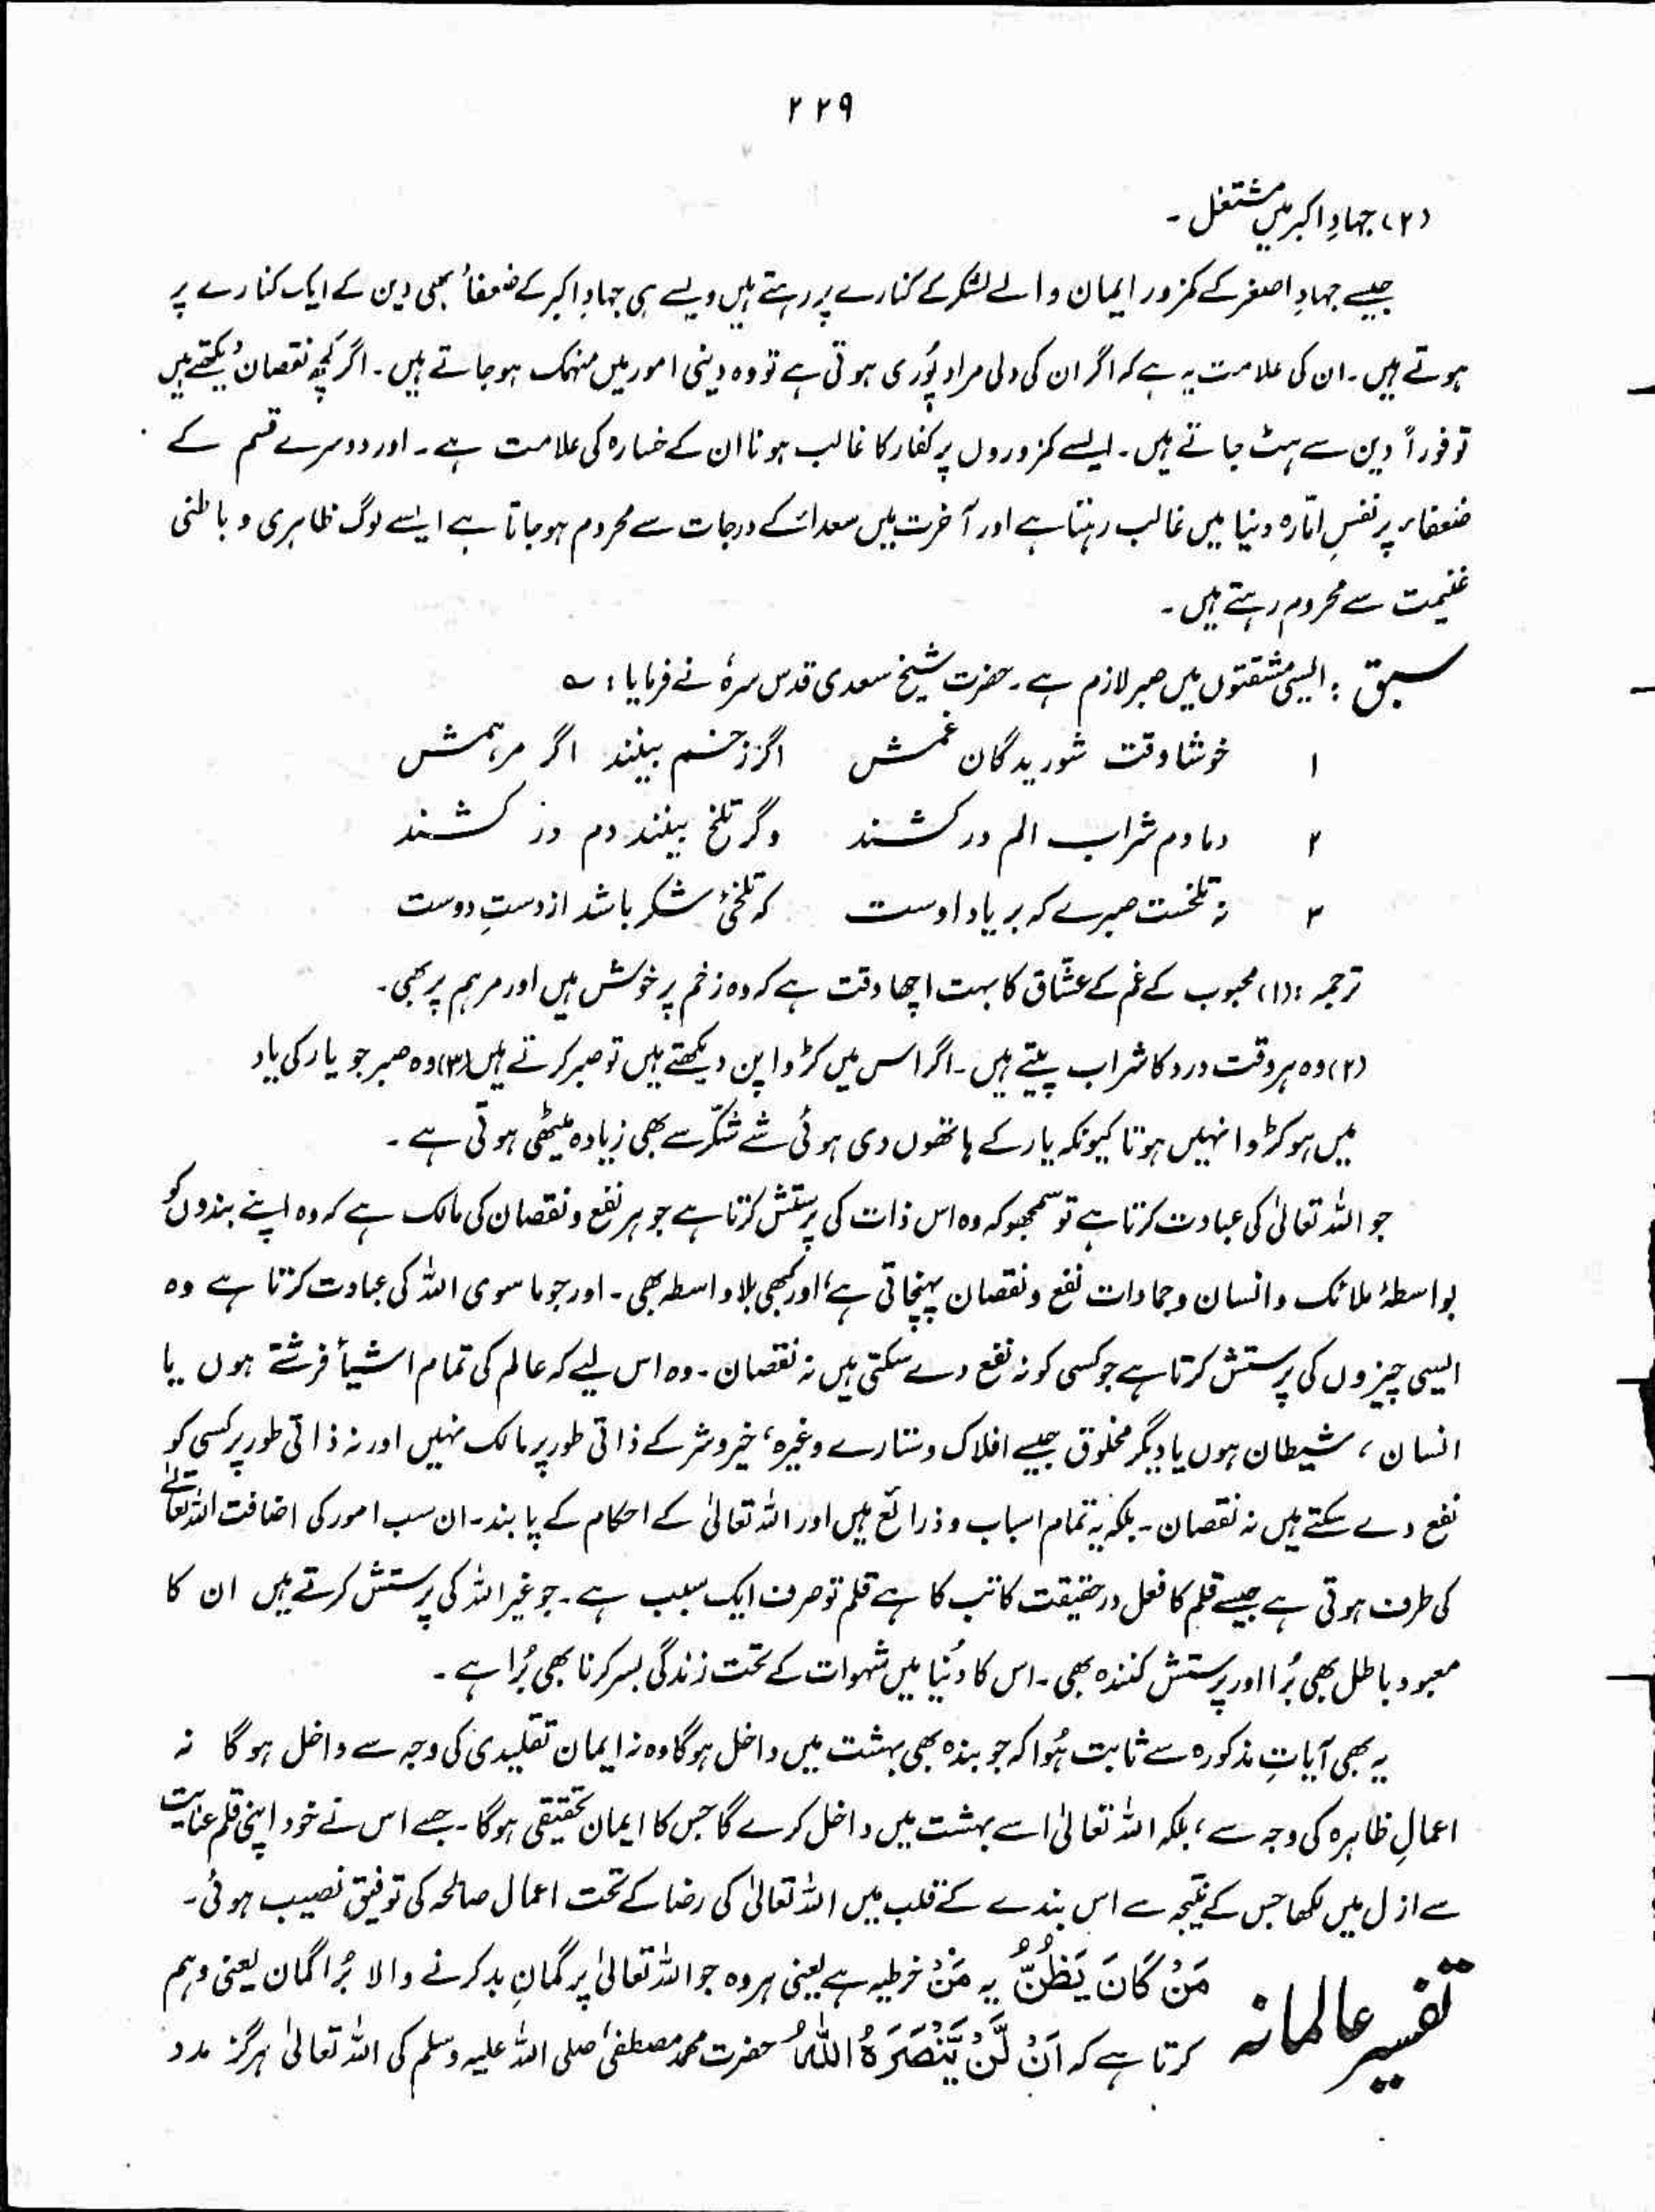 ۲۲۹
(۲) جہادِ اکبر میں مشتغل ۔
جیسے جہادِ اصغر کے کمزور ایمان والے لشکر کے کنارے پر رہتے ہیں ویسے ہی جہادِ اکبر کے ضعفاء بھی دین کے ایک کنارے پر
ہوتے ہیں ۔ ان کی علامت یہ ہے کہ اگر ان کی دلی مراد پُوری ہوتی ہے تو وہ دینی امور میں منہمک ہو جاتے ہیں ۔ اگر کچھ نقصان دیکھتے ہیں
تو فوراً دین سے ہٹ جاتے ہیں ۔ ایسے کمزوروں پر کفار کا غالب ہونا ان کے خسارہ کی علامت ہے ۔ اور دوسرے قسم کے
ضعفاء پر نفسِ امّارہ دنیا میں غالب رہتا ہے اور آخرت میں سعداء کے درجات سے محروم ہو جاتا ہے ایسے لوگ ظاہری و باطنی
غنیمت سے محروم رہتے ہیں ۔
سبق : ایسی مشقتوں میں صبر لازم ہے ۔ حضرت شیخ سعدی قدس سرہٗ نے فرمایا : ؎
۱ خوشا وقت شوریدگان غمش اگر زخم بینند اگر مرہمش
۲ دمادم شراب الم در کشند وگر تلخ بینند دم در کشند
۳ نہ تلخست صبرے کہ بر یاد اوست کہ تلخیٔ شکر باشد از دستِ دوست
ترجمہ : (۱) محبوب کے غم کے عشّاق کا بہت اچھا وقت ہے کہ وہ زخم پر خوش ہیں اور مرہم پر بھی ۔
(۲) وہ ہر وقت درد کا شراب پیتے ہیں ۔ اگر اس میں کڑواپن دیکھتے ہیں تو صبر کرتے ہیں (۳) وہ صبر جو یار کی یاد
میں ہو کڑوا نہیں ہوتا کیونکہ یار کے ہاتھوں دی ہوئی شے شکّر سے بھی زیادہ میٹھی ہوتی ہے ۔
جو اللہ تعالیٰ کی عبادت کرتا ہے تو سمجھو کہ وہ اس ذات کی پرستش کرتا ہے جو ہر نفع و نقصان کی مالک ہے کہ وہ اپنے بندوں کو
بواسطۂ ملائک و انسان و جمادات نفع و نقصان پہنچاتی ہے، اور کبھی بلا واسطہ بھی ۔ اور جو ماسوی اللہ کی عبادت کرتا ہے وہ
ایسی چیزوں کی پرستش کرتا ہے جو کسی کو نہ نفع دے سکتی ہیں نہ نقصان ۔ وہ اس لیے کہ عالم کی تمام اشیأ فرشتے ہوں یا
انسان ، شیطان ہوں یا دیگر مخلوق جیسے افلاک و ستارے وغیرہ، خیر و شر کے ذاتی طور پر مالک نہیں اور نہ ذاتی طور پر کسی کو
نفع دے سکتے ہیں نہ نقصان ۔ بلکہ یہ تمام اسباب و ذرائع ہیں اور اللہ تعالیٰ کے احکام کے پابند ۔ ان سب امور کی اضافت اللہ تعالےٰ
کی طرف ہوتی ہے جیسے قلم کا فعل درحقیقت کاتب کا ہے قلم تو صرف ایک سبب ہے ۔ جو غیر اللہ کی پرستش کرتے ہیں ان کا
معبود باطل بھی بُرا اور پرستش کنندہ بھی ۔ اس کا دُنیا میں شہوات کے تحت زندگی بسر کرنا بھی بُرا ہے ۔
یہ بھی آیاتِ مذکورہ سے ثابت ہُوا کہ جو بندہ بھی بہشت میں داخل ہوگا وہ نہ ایمان تقلیدی کی وجہ سے داخل ہوگا نہ
اعمالِ ظاہرہ کی وجہ سے ، بلکہ اللہ تعالیٰ اسے بہشت میں داخل کرے گا جس کا ایمان تحقیقی ہوگا ۔ جسے اس نے خود اپنی قلم عنایت
سے ازل میں لکھا جس کے نتیجہ سے اس بندے کے قلب میں اللہ تعالیٰ کی رضا کے تحت اعمال صالحہ کی توفیق نصیب ہوئی ۔
تفسیر عالمانہ مَنْ كَانَ يَظُنُّ یہ مَنْ خرطیہ ہے یعنی ہر وہ جو اللہ تعالیٰ پر گمانِ بد کرنے والا بُرا گمان یعنی وہم
کرتا ہے کہ اَنْ لَّنْ يَّنْصُرَهُ اللّٰهُ حضرت محمد مصطفیٰ صلی اللہ علیہ وسلم کی اللہ تعالیٰ ہرگز مدد